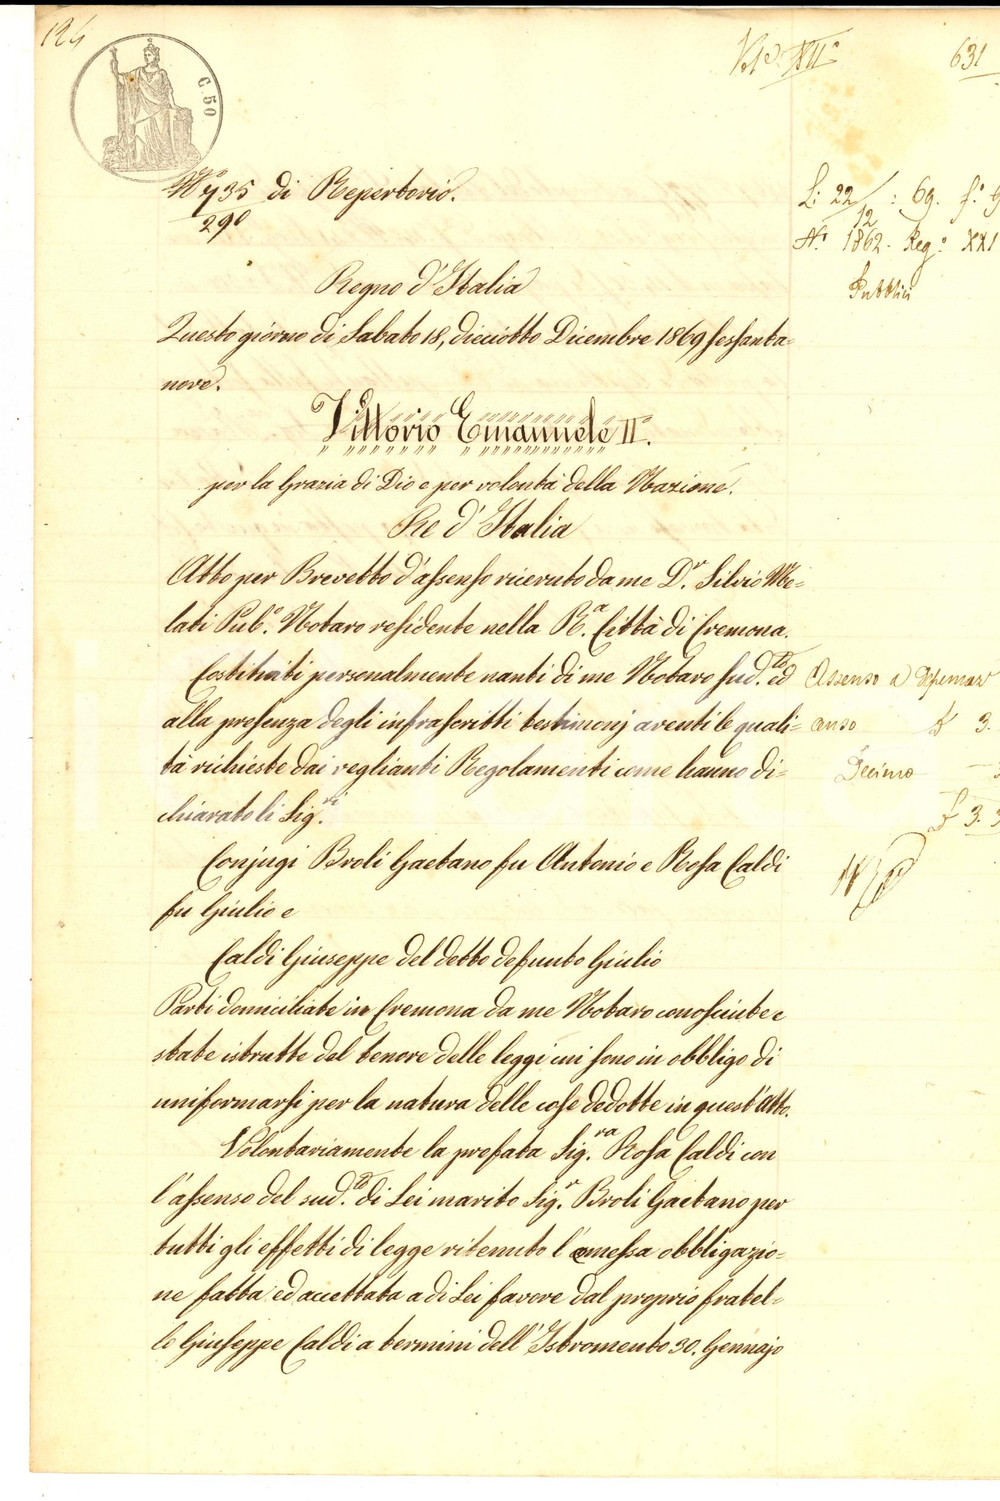 124
631
C. 50
N.° 735 di Repertorio.
290
L: 22/12 : 69. f.°
N.° 1862. Reg.° XXI
Pubblici
Regno d'Italia
Questo giorno di Sabato 18, dieciotto Dicembre 1869 sessanta=
nove.
Vittorio Emanuele II.
per la Grazia di Dio e per volontà della Nazione.
Re d'Italia
Atto per Brevetto d'assenso ricevuto da me D.r Silvio Me=
lati Pub.° Notaro residente nella R.a Città di Cremona.
Costituiti personalmente nanti di me Notaro sud.to ed
alla presenza degli infrascritti testimonj aventi le quali=
tà richieste dai veglianti Regolamenti come hanno di=
chiarato li Sig.ri
Assenso a
£ 3.
Decimo
£ 3. 3
Conjugi Broli Gaetano fu Antonio e Rosa Caldi
fu Giulio e
Caldi Giuseppe del detto defunto Giulio
Parti domiciliate in Cremona da me Notaro conosciute e
state istrutte del tenore delle leggi cui sono in obbligo di
uniformarsi per la natura delle cose dedotte in quest'Atto.
Volontariamente la prefata Sig.ra Rosa Caldi con
l'assenso del sud.to di Lei marito Sig.r Broli Gaetano per
tutti gli effetti di legge ritenuto l'emessa obbligazio=
ne fatta ed accettata a di Lei favore dal proprio fratel=
lo Giuseppe Caldi a termini dell'Istromento 30. Gennajo